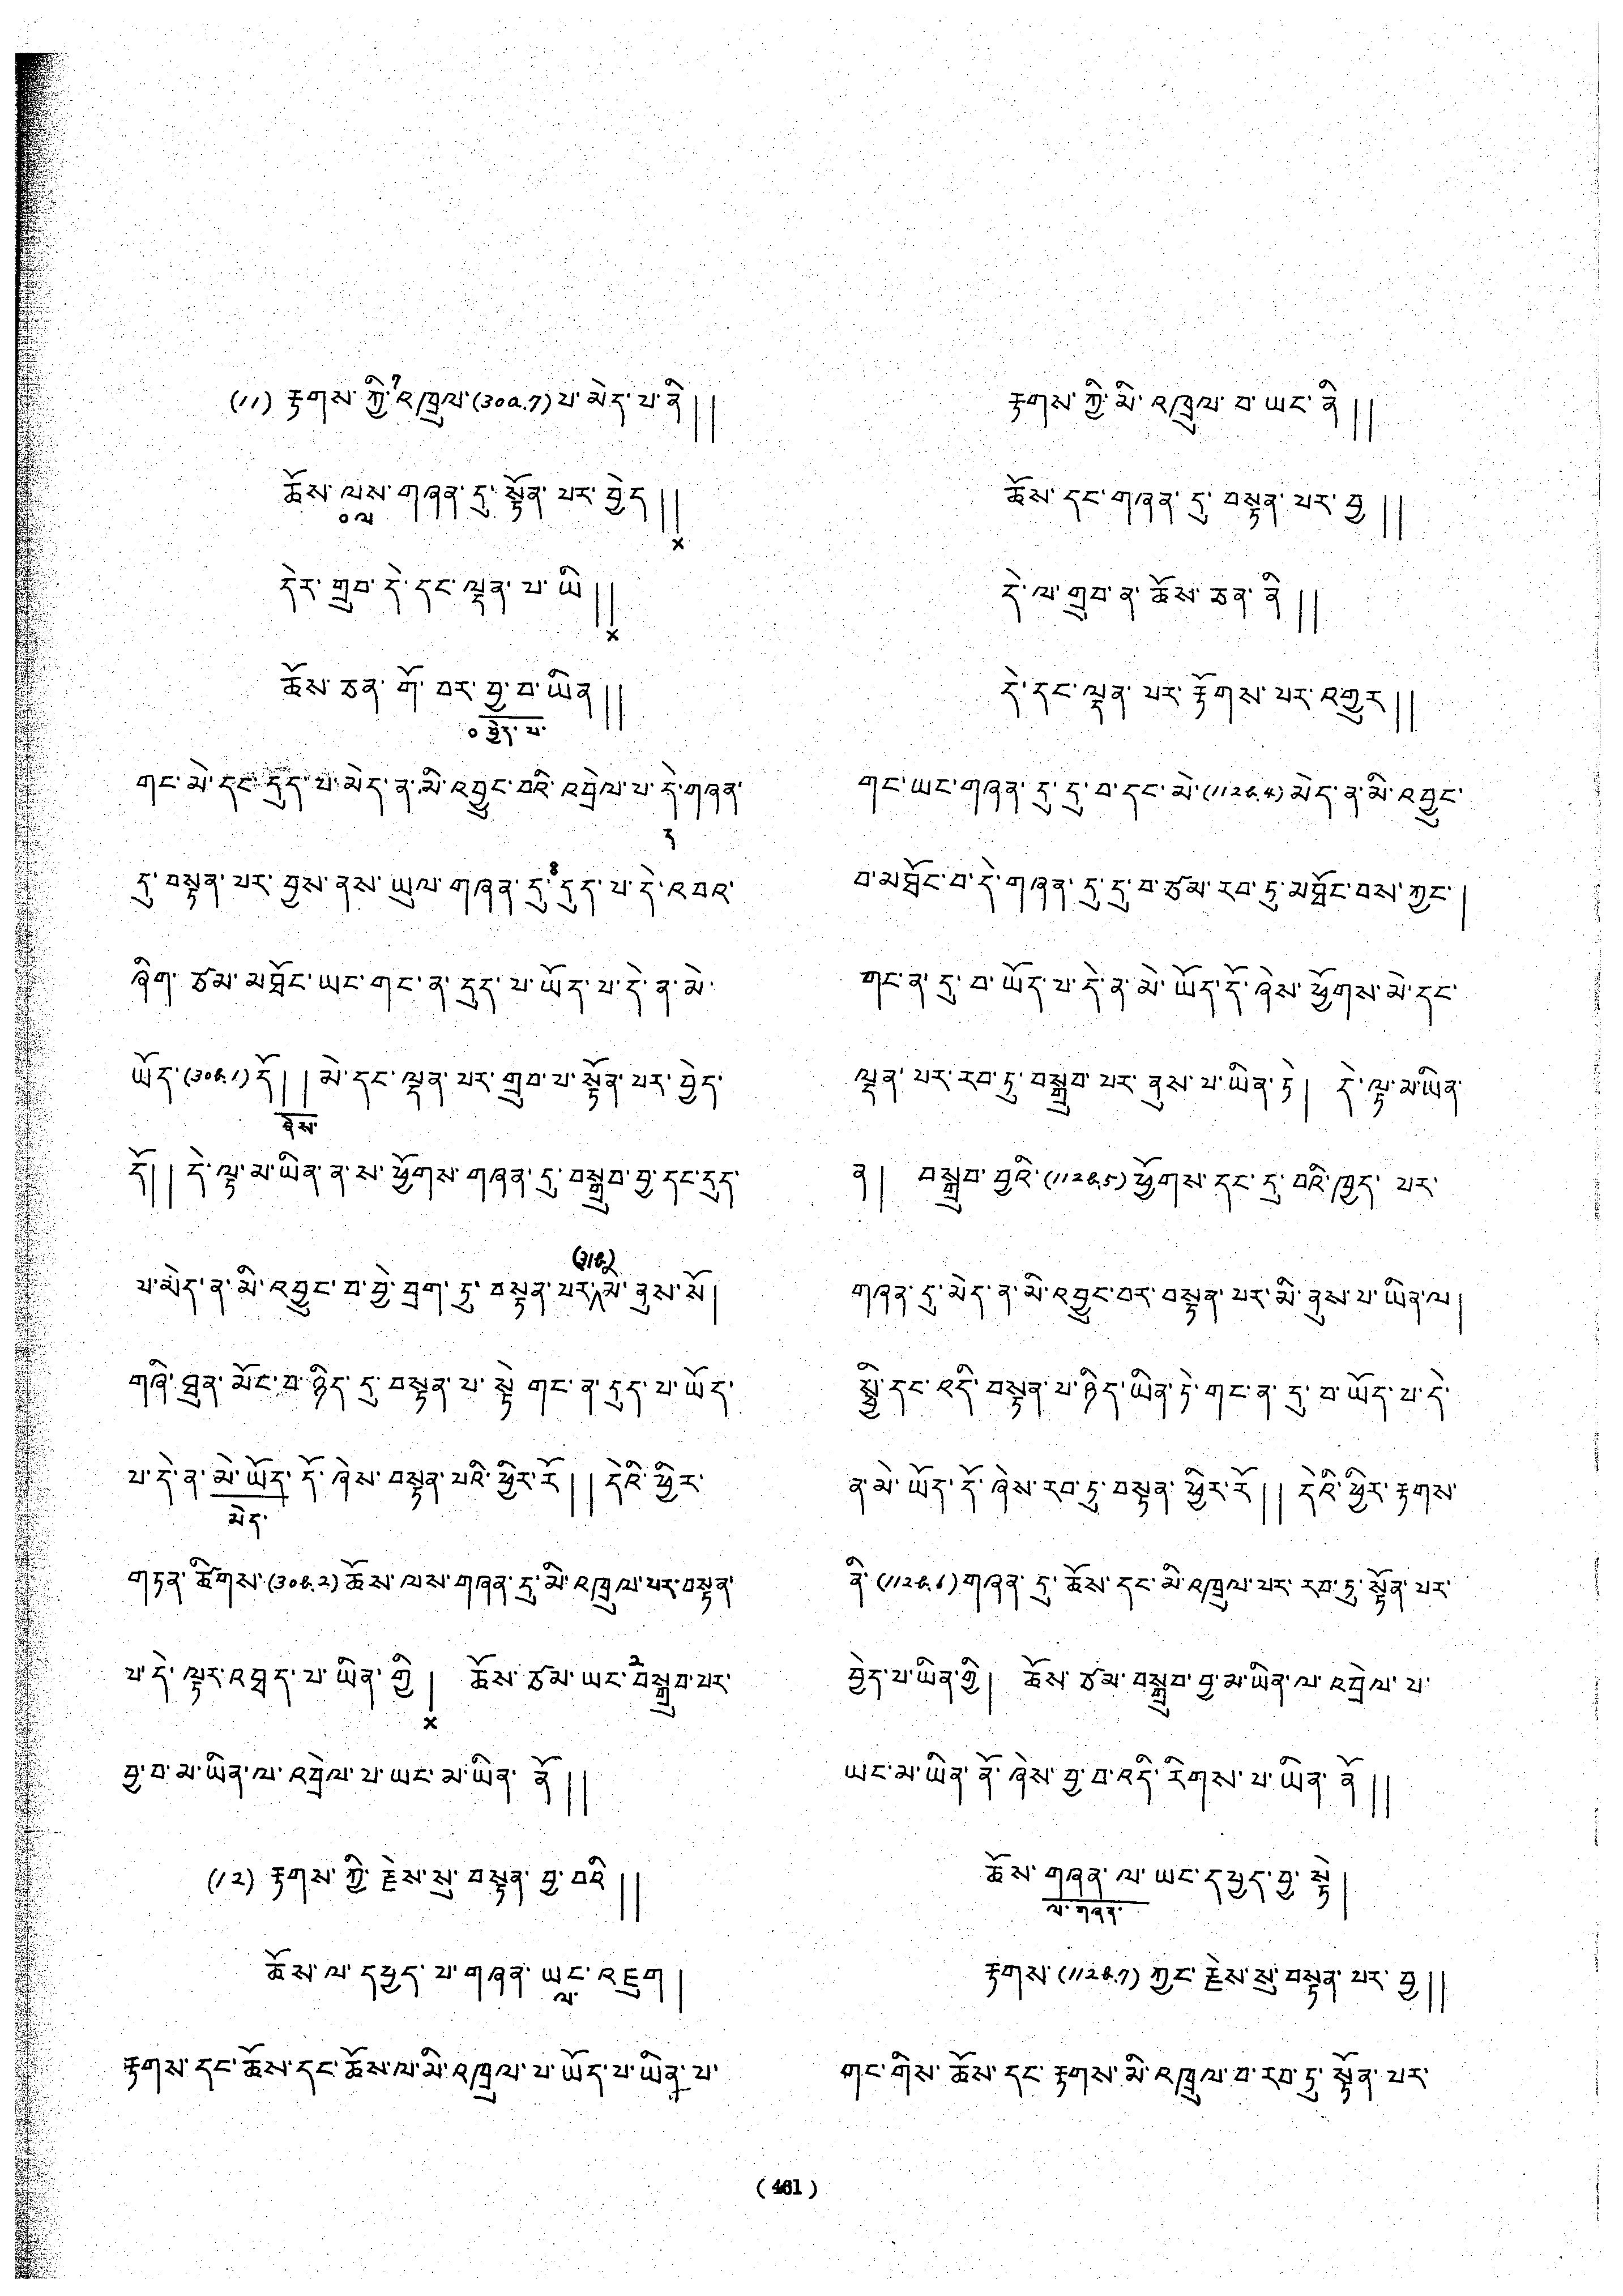 (11) རྟགས་ ཀྱི་⁷འཁྲུལ་(30a.7) པ་ མེད་ པ་ ནི །།
ཆོས་ ལས་ གཞན་ དུ་ སྟོན་ པར་ བྱེད །།
০ལ
×
དེར་ གྲུབ་ དེ་ དང་ ལྡན་ པ་ ཡི །།
×
ཆོས་ ཅན་ གོ་ བར་ བྱ་ བ་ ཡིན །།
০ བྱེད་ པ་
གང་ མེ་ དང་ དུད་ པ་ མེད་ ན་ མི་ འབྱུང་ བའི་ འབྲེལ་ པ་ དེ་ གཞན་
ད
དུ་ བསྟན་ པར་ བྱས་ ནས་ ཡུལ་ གཞན་ དུ་⁸དུད་ པ་ དེ་ འབའ་
ཞིག་ ཙམ་ མཐོང་ ཡང་ གང་ ན་ དུད་ པ་ ཡོད་ པ་ དེ་ ན་ མེ་
ཡོད་(30b.1) དོ །། མེ་ དང་ ལྡན་ པར་ གྲུབ་ པ་ སྟོན་ པར་ བྱེད་
ཞེས་
དོ།། དེ་ ལྟ་ མ་ ཡིན་ ན་ ས་ ཕྱོགས་ གཞན་ དུ་ བསྒྲུབ་ བྱ་ དང་ དུད་
(31b)
པ་ མེད་ ན་ མི་ འབྱུང་ བ་ བྱེ་ བྲག་ ཏུ་ བསྟན་ པར་ མི་ ནུས་ སོ།
གཞི་ ཐུན་ མོང་ བ་ ཉིད་ དུ་ བསྟན་ པ་ སྟེ་ གང་ ན་ དུད་ པ་ ཡོད་
པ་ དེ་ ན་ མེ་ ཡོད་ དོ་ ཞེས་ བསྟན་ པའི་ ཕྱིར་ རོ །། དེའི་ ཕྱིར་
མེད་
གཏན་ ཚིགས་ (30b.2) ཆོས་ ལས་ གཞན་ དུ་ མི་ འཁྲུལ་ པར་ བསྟན་
པ་ དེ་ ལྟར་ འཐད་ པ་ ཡིན་ གྱི །  ཆོས་ ཙམ་ ཡང་ ²བསྒྲུབ་ པར་
×
བྱ་ བ་ མ་ ཡིན་ ལ་ འབྲེལ་ པ་ ཡང་ མ་ ཡིན་ ནོ །།
(12) རྟགས་ ཀྱི་ རྗེས་ སུ་ བསྟན་ བྱ་ བའི །།
ཆོས་ ལ་ དཔྱད་ པ་ གཞན་ ཡང་ འཇུག །
ལ་
རྟགས་ དང་ ཆོས་ དང་ ཆོས་ ལ་ མི་ འཁྲུལ་ པ་ ཡོད་ པ་ ཡིན་ པ་
རྟགས་ ཀྱི་ མི་ འཁྲུལ་ བ་ ཡང་ ནི །།
ཆོས་ དང་ གཞན་ དུ་ བསྟན་ པར་ བྱ །།
དེ་ ལ་ གྲུབ་ ན་ ཆོས་ ཅན་ ནི །།
དེ་ དང་ ལྡན་ པར་ རྟོགས་ པར་ འགྱུར །།
གང་ ཡང་ གཞན་ དུ་ དུ་ བ་ དང་ མེ་ (112b.4) མེད་ ན་ མི་ འབྱུང་
བ་ མཐོང་ བ་ དེ་ གཞན་ དུ་ དུ་ བ་ ཙམ་ རབ་ ཏུ་ མཐོང་ བས་ ཀྱང་ །
གང་ ན་ དུ་ བ་ ཡོད་ པ་ དེ་ ན་ མེ་ ཡོད་ དོ་ ཞེས་ ཕྱོགས་ མེ་ དང་
ལྡན་ པར་ རབ་ ཏུ་ བསྒྲུབ་ པར་ ནུས་ པ་ ཡིན་ ཏེ །  དེ་ ལྟ་ མ་ ཡིན་
ན །  བསྒྲུབ་ བྱའི་ (112b.5) ཕྱོགས་ དང་ དུ་ བའི་ ཁྱད་ པར་
གཞན་ དུ་ མེད་ ན་ མི་ འབྱུང་ བར་ བསྟན་ པར་ མི་ ནུས་ པ་ ཡིན་ ལ །
སྤྱི་ དང་ འདི་ བསྟན་ པ་ ཉིད་ ཡིན་ ཏེ་ གང་ ན་ དུ་ བ་ ཡོད་ པ་ དེ་
ན་ མེ་ ཡོད་ དོ་ ཞེས་ རབ་ ཏུ་ བསྟན་ ཕྱིར་ རོ །། དེའི་ ཕྱིར་ རྟགས་
ནི་ (112b.6) གཞན་ དུ་ ཆོས་ དང་ མི་ འཁྲུལ་ པར་ རབ་ ཏུ་ སྟོན་ པར་
བྱེད་ པ་ ཡིན་ གྱི །  ཆོས་ ཙམ་ བསྒྲུབ་ བྱ་ མ་ ཡིན་ ལ་ འབྲེལ་ པ་
ཡང་ མ་ ཡིན་ ནོ་ ཞེས་ བྱ་ བ་ འདི་ རིགས་ པ་ ཡིན་ ནོ །།
ཆོས་ གཞན་ ལ་ ཡང་ དཔྱད་ བྱ་ སྟེ །
ལ་ གཞན་
རྟགས་ (112b.7) ཀྱང་ རྗེས་ སུ་ བསྟན་ པར་ བྱ །།
གང་ གིས་ ཆོས་ དང་ རྟགས་ མི་ འཁྲུལ་ བ་ རབ་ ཏུ་ སྟོན་ པར་
( 461 )